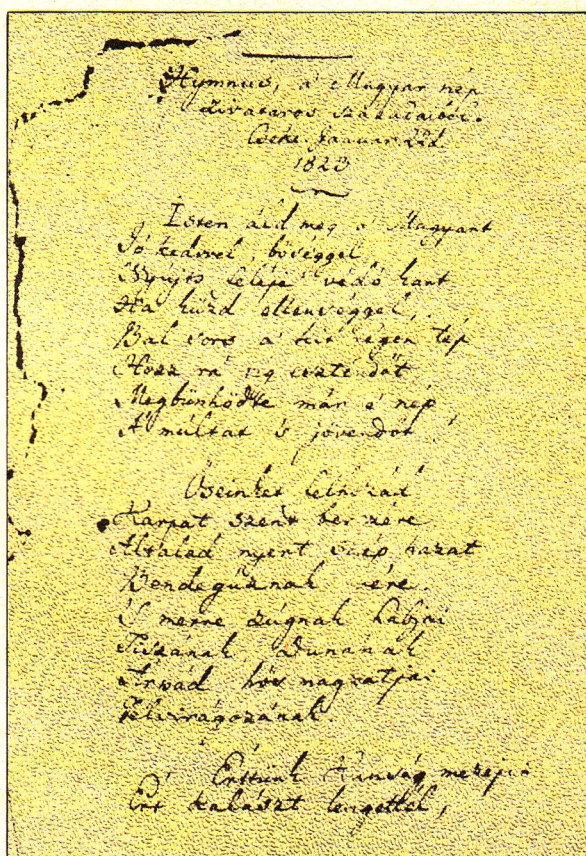 Hymnus, a' Magyar nép
zivataros századaiból.
Cseke Januar 22d
1823
Isten áld meg a' Magyart
Jó kedvvel, bőséggel
Nyújts feléje védő kart
Ha küzd ellenséggel,
Bal sors a' kit régen tép
Hozz rá víg esztendőt
Megbünhödte már e' nép
A' múltat 's jövendőt!
Őseinket felhozád
Kárpát szent bérczére
Általad nyert szép hazát
Bendegúznak vére.
'S merre zúgnak habjai
Tiszának, Dunának
Árpád hős magzatjai
Felvirágozának
Értünk Kunság mezejin
Ért kalászt lengettél,